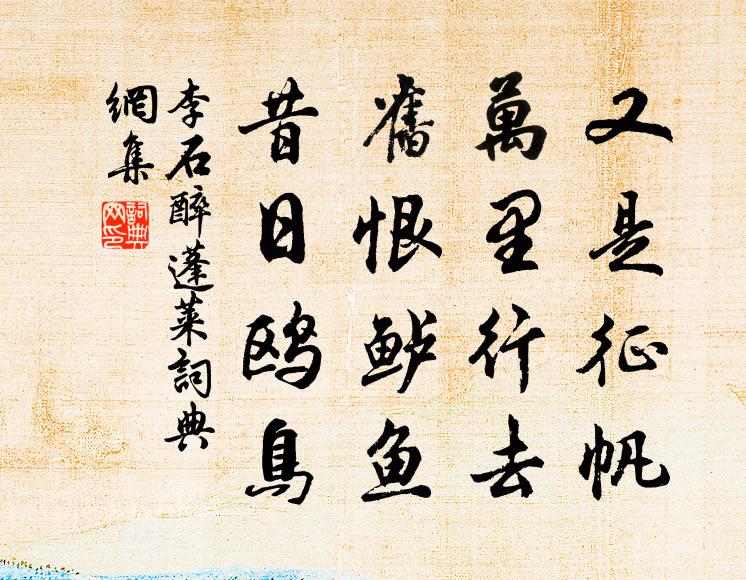 又是征帆
萬里行去
舊恨鲈鱼
昔日鸥鳥
李石醉蓬莱詞典
網集
詞典網印